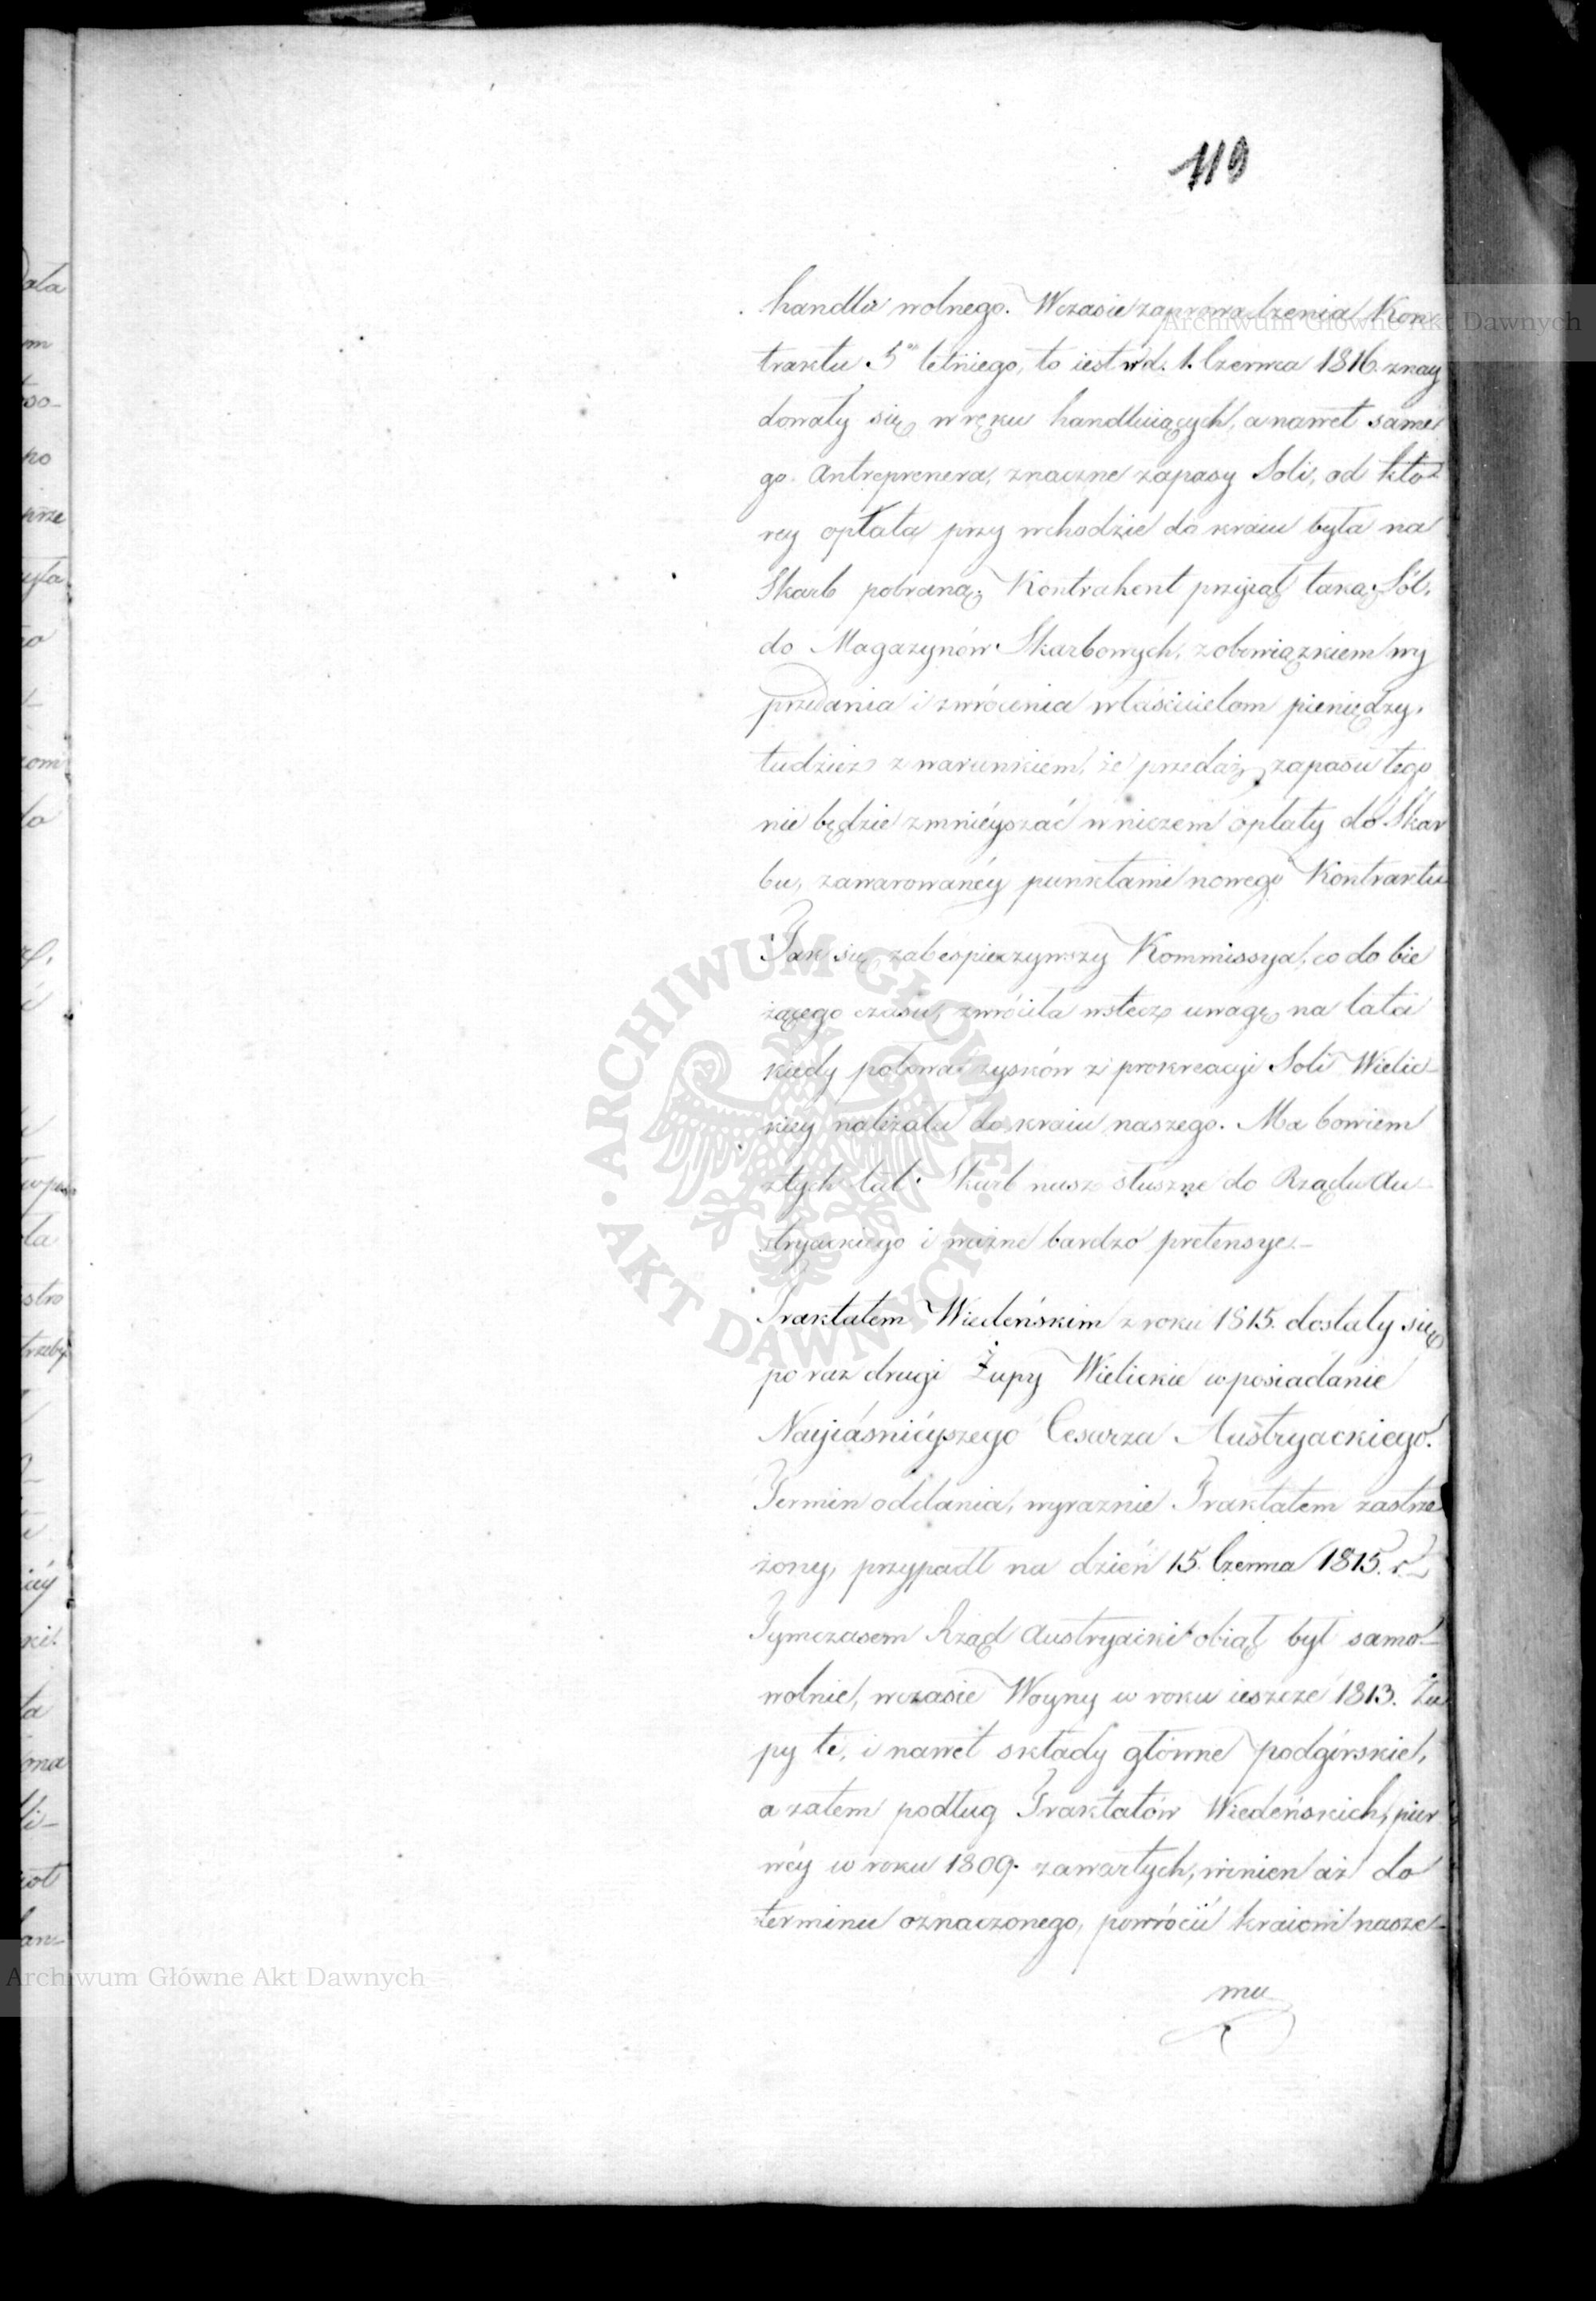 119
handlu wolnego. Wczasie zaprowadzenia Kon
traktu 5 letniego, to iest w d. 1. Czerwca 1816. znay
dowały się w ręku handluiących, a nawet same
go Antreprenera, znaczne zapasy Soli, od któ
rey opłata przy wchodzie do kraiu była na
Skarb pobraną; Kontrahent przyiął taką Sól,
do Magazynów Skarbowych, z obowiązkiem wy
przedania i zwrócenia właścicielom pieniędzy,
tudzież z warunkiem, że przedaż zapasu tego
nie będzie zmniéyszać w niczem opłaty do Skar
bu, zawarowanéy punktami nowego Kontraktu
Tak się zabespieczywszy Kommissya, co do bie
żącego czasu, zwróciła wstecz uwagę na lata
kiedy połowa zysków z prokreacyi Soli Wielic-
kiey należała do kraiu naszego. Ma bowiem
z tych lat Skarb nasz słuszne do Rządu Au-
stryackiego i ważne bardzo pretensye.-
Traktatem Wiedeńskim z roku 1815. dostały się
po raz drugi Żupy Wielickie w posiadanie
Nayiáśniéyszego Cesarza Austryackiego.
Termin oddania, wyraznie Traktatem zastrze
żony, przypadł na dzień 15. Czerwca 1815. r.-
Tymczasem Rząd Austryacki obiął był samo-
wolnie, wczasie Woyny w roku ieszcze 1813. Żu
py te, i nawet składy główne podgórskie,
a zatem podług Traktatów Wiedeńskich, pier
wéy w roku 1809. zawartych, winien aż do
terminu oznaczonego, powrócić kraiowi nasze-
mu
Archiwum Główne Akt Dawnych
ARCHIWUM GŁÓWNE · AKT DAWNYCH ·
Archiwum Główne Akt Dawnych